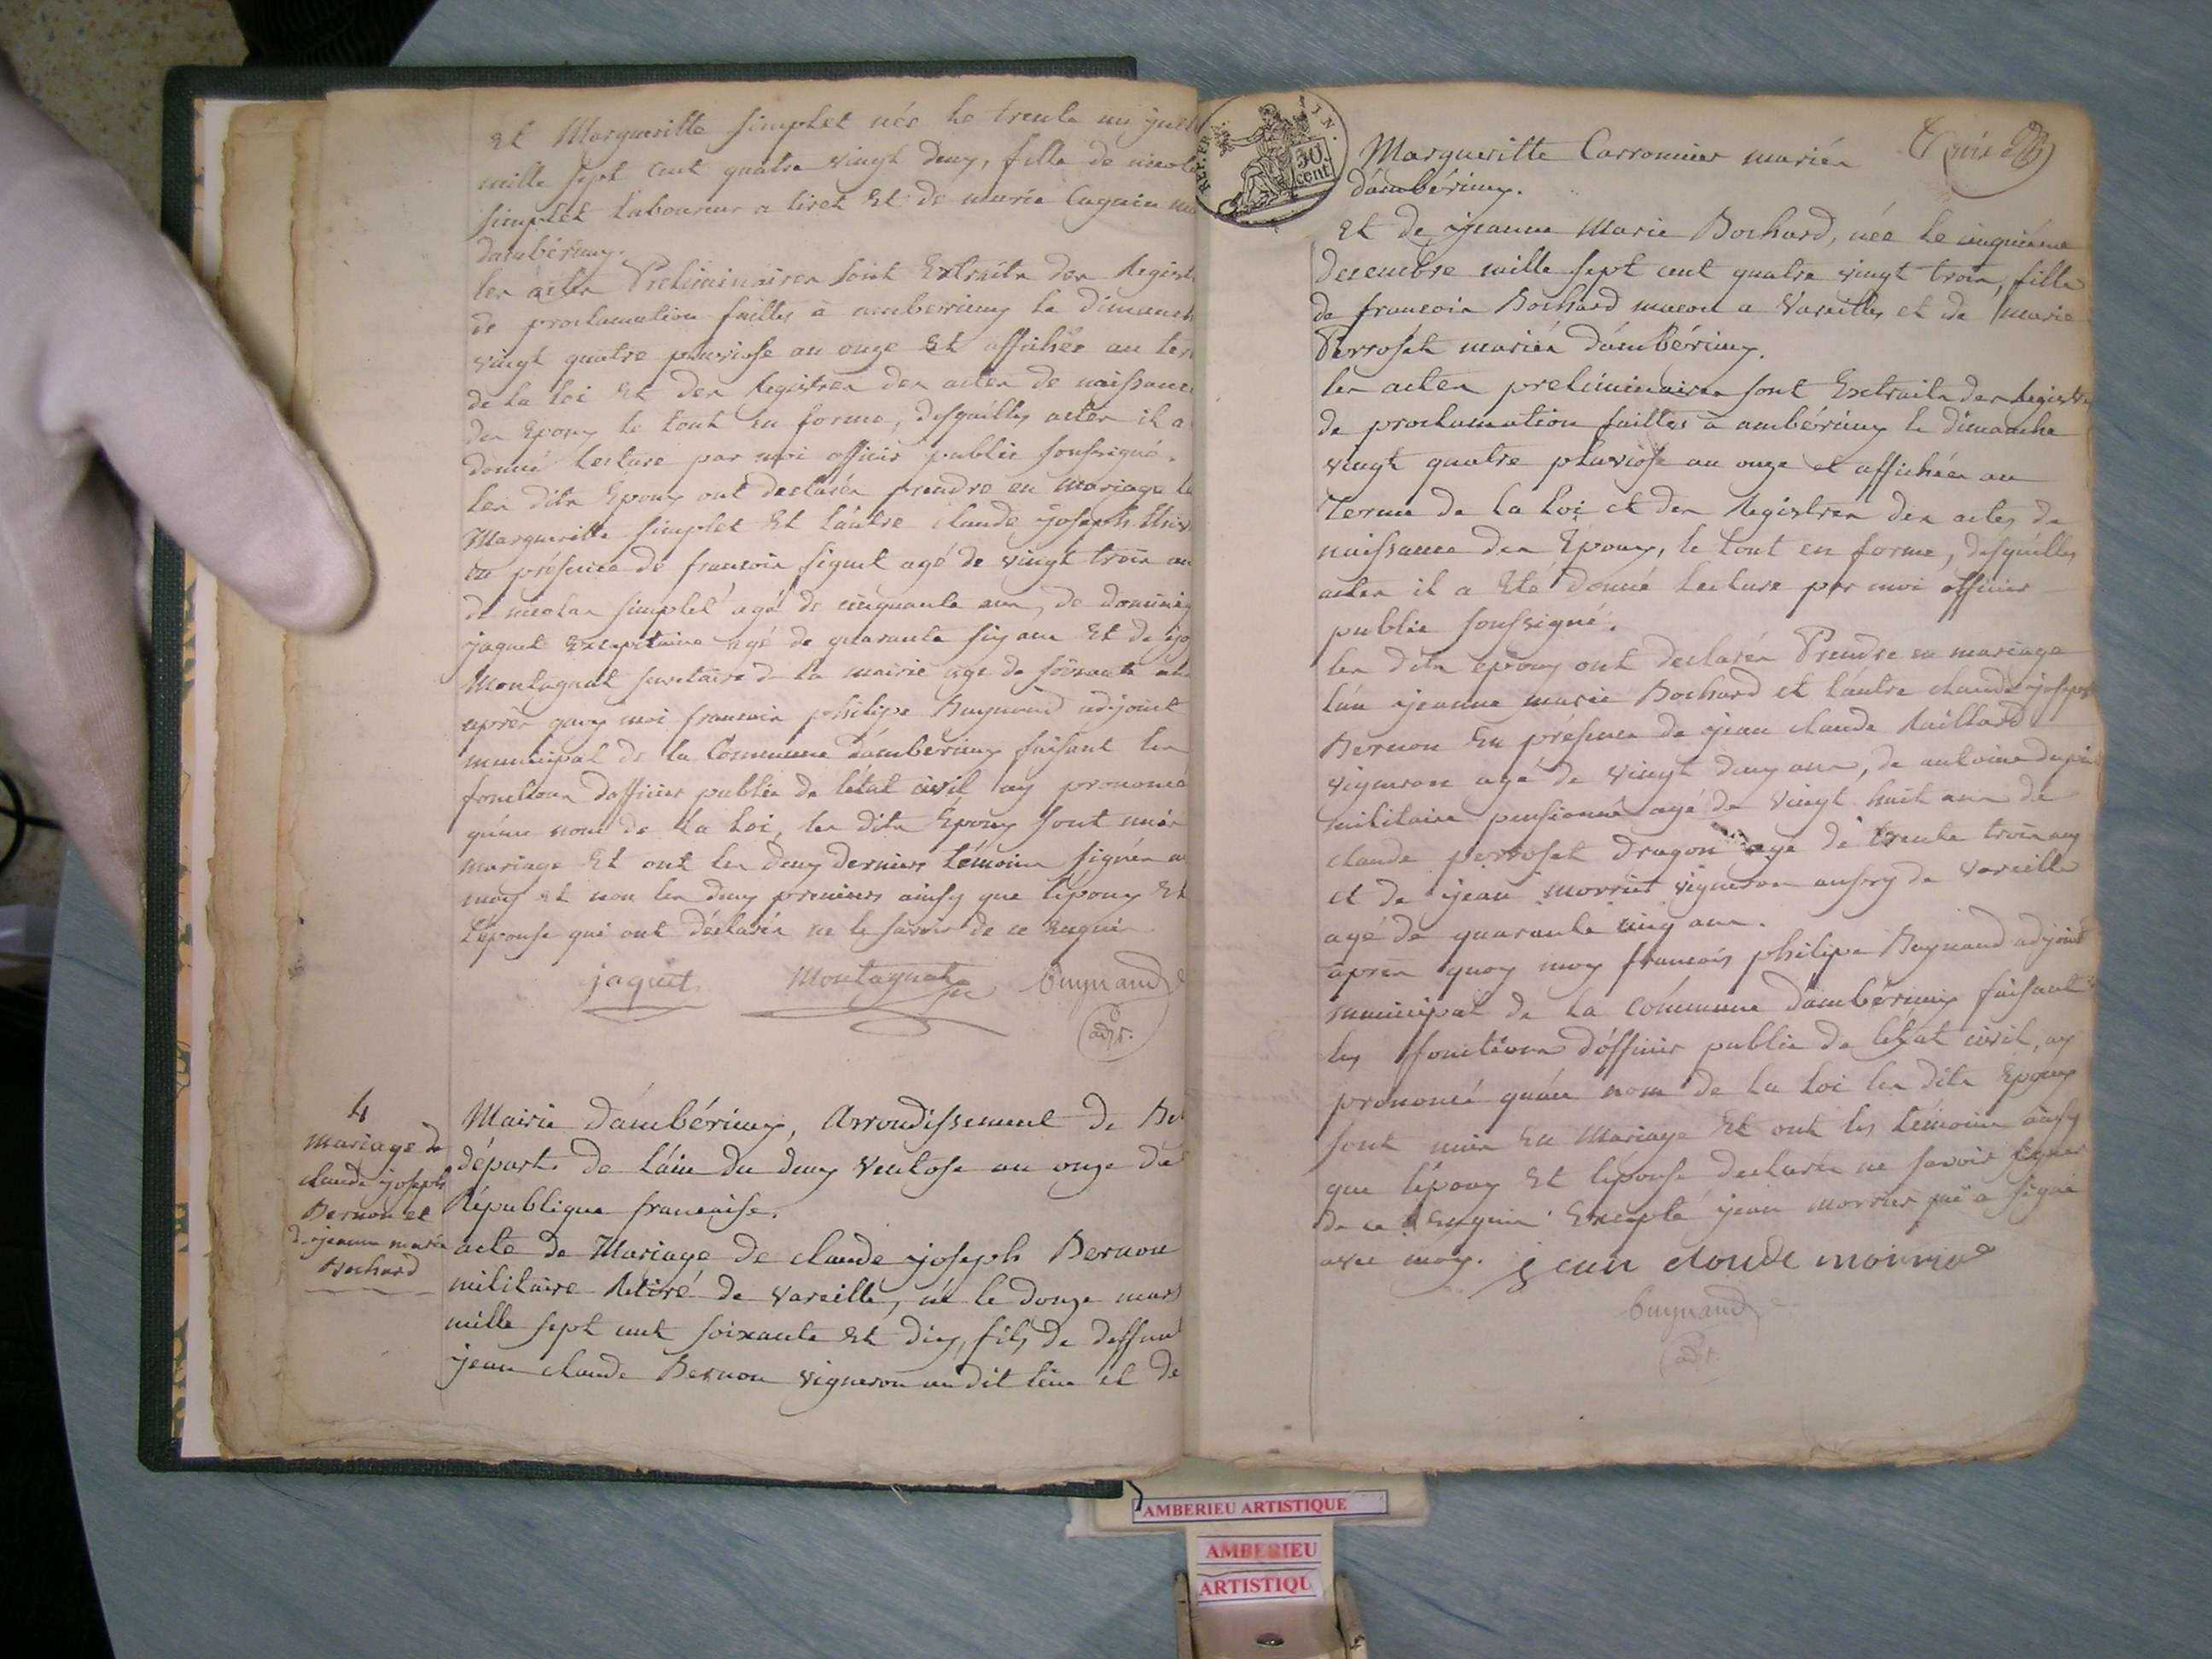 Et Margueritte simplet née le trente un juil
mille sept cent quatre vingt deux, fille de nicola
simplet laboureur a tiret Et de marie Cagnin
dambérieux.
les actes Preliminaires sont Extraits des Regist
de proclamation faittes à amberieux le dimanch
vingt quatre pluviose an onze Et affichés au ter
de la loi Et des Registres des actes de naissance
des Epoux le tout en forme, desquilles actes il a
donné lecture par moi officier public soussigné.
les dits Epoux ont declarés prendre en mariage
Margueritte simplet Et l'autre claude joseph
en présence de francois siguet agé de vingt trois an
de nicolas simplet agé de cinquante ans, de dominiq
jaquet Excapitaine agé de quarante six ans Et de
Montagnat secretaire de la mairie agé de soixante
après quoy moi francois philipe Buynand adjoint
municipal de la Commune dambérieux faisant les
fonctions dofficier public de l'état civil ay prononcé
qu'au nom de la loi, les dits Epoux sont unis
mariage Et ont les deux derniers témoins signés a
moy et non les deux premiers ainsy que l'époux Et
L'épouse qui ont déclarés ne le savoir de ce Enquis
jaquet Montagnat Buynand
adjt.
4
Mariage de
claude joseph
Bernon et
d. jeanne marie
Bochard
Mairie dambérieux, Arrondissement de Bel
départ. de l'ain du deux Ventose an onze de
République francaise.
acte de Mariage de claude joseph Bernon
militaire Retiré de Vareille, né le douze mars
mille sept cent soixante Et dix, fils de deffun
jean claude Bernon vigneron au dit lieu et de
REP. FRA.
50.
cent
Margueritte Carronnier mariés
d'ambérieux.
Et de jeanne Marie Bochard, née le cinquiéme
decembre mille sept cent quatre vingt trois, fille
de francois Bochard macon a Vareilles et de marie
Perroset mariés d'ambérieux.
les actes preliminaires sont Extraits des Regist
de proclamation faittes à ambérieux le dimanche
vingt quatre pluviose an onze et affichés au
Terme de la Loi et des Registres des actes de
naissance des Epoux, le tout en forme, desquilles
actes il a Eté donné lecture par moi officier
public soussigné.
les dits epoux ont declarés Prendre en mariage
l'un jeanne marie Bochard et l'autre claude joseph
Bernon En présence de jean claude Raillard
vigneron agé de vingt deux ans, de antoine
militaire pensionné agé de vingt huit ans de
claude perroset dragon age de trente trois ans
et de jean morrier vigneron aussy de Vareille
agé de quarante cinq ans.
après quoy moy francois philipe Buynand adjoint
municipal de la cómmune d'ambérieux faisant
les fonctions d'officier public de l'état civil, ay
prononcé qu'au nom de la loi les dits Epoux
sont unis En Mariage Et ont les témoins ainsy
que l'époux Et l'épouse declarés ne savoir signer
de ce Enquis Excepté jean morrier qui a signé
avec moy. jean cloude moirrier
Buynand
adjt.
AMBERIEU ARTISTIQUE
AMBERIEU
ARTISTIQU